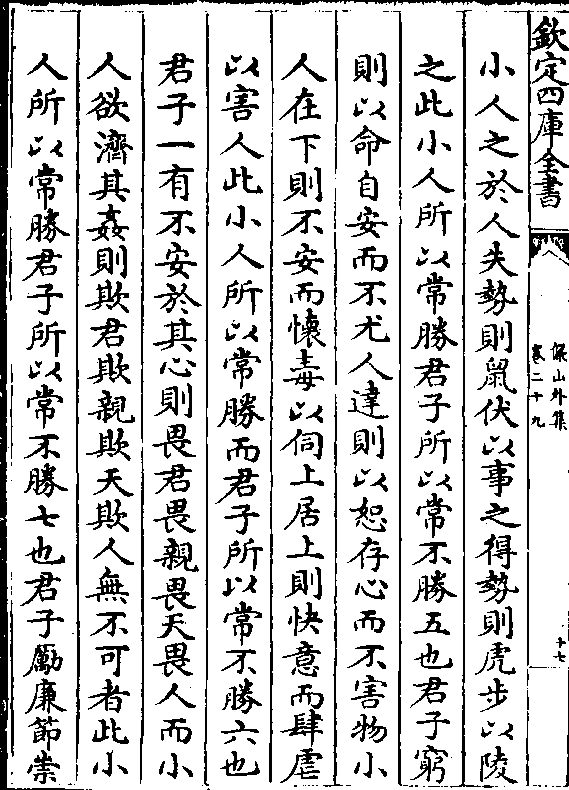 欽定四庫全書
保山外集
卷二十九
十七
小人之於人失勢則鼠伏以事之得勢則虎步以陵
之此小人所以常勝君子所以常不勝五也君子窮
則以命自安而不尤人達則以恕存心而不害物小
人在下則不安而懷毒以伺上居上則快意而肆虐
以害人此小人所以常勝而君子所以常不勝六也
君子一有不安於其心則畏君畏親畏天畏人而小
人欲濟其姦則欺君欺親欺天欺人無不可者此小
人所以常勝君子所以常不勝七也君子勵廉節崇